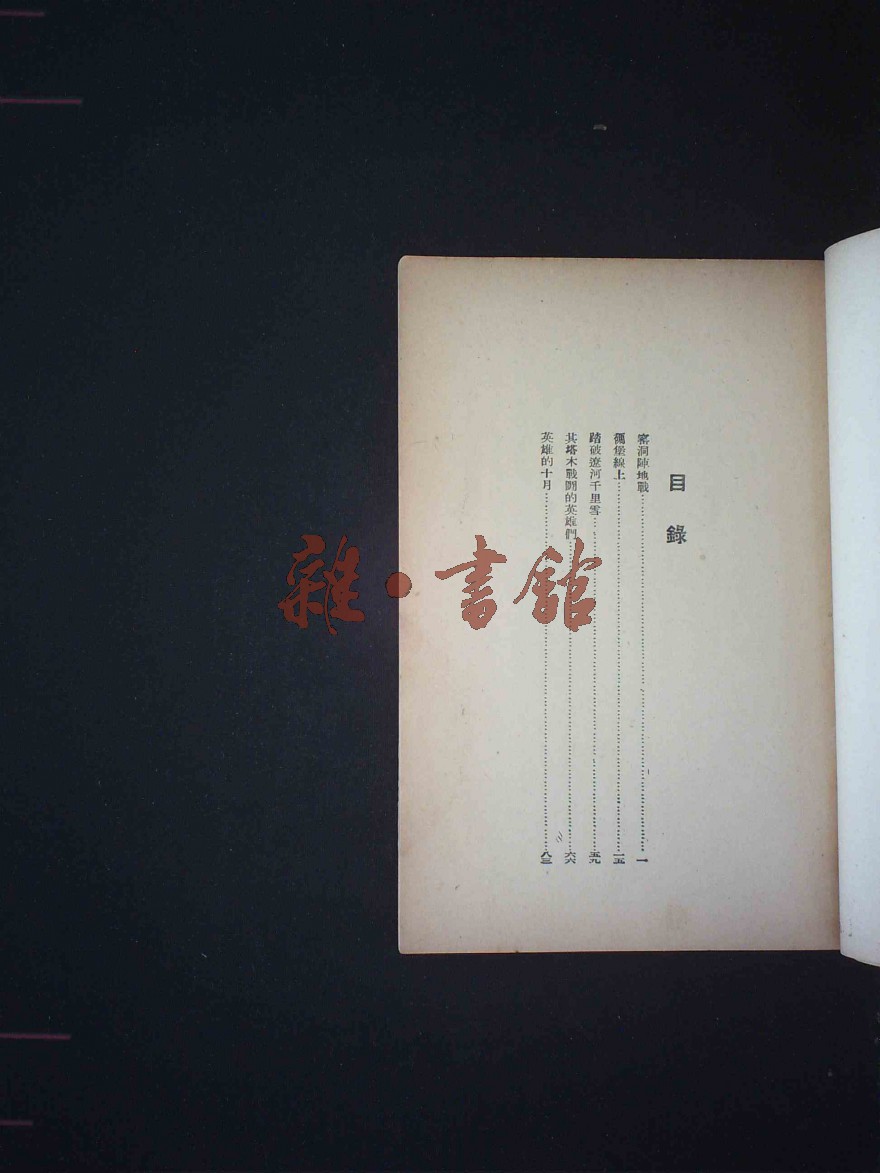 目錄
窰洞陣地戰 一
碉堡線上 一五
踏破遼河千里雪 五九
其塔木戰鬥的英雄們 六六
英雄的十月 八三
雜·書館